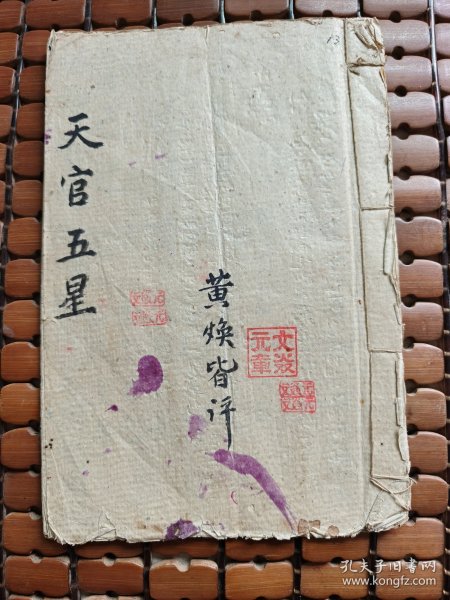 天官五星
黄焕皆评
文焱
元章
13
孔夫子旧书网
www.kongfz.com